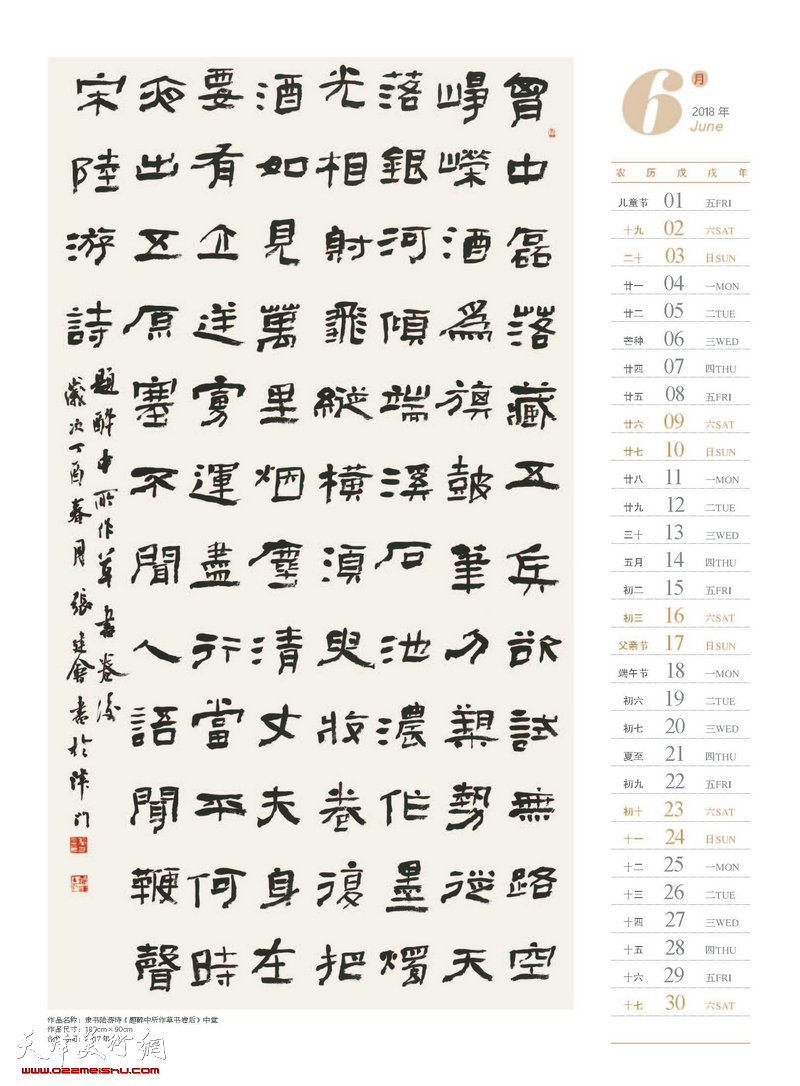 胷中磊落藏五兵欲試無路空
崢嶸酒為旗鼓筆刀槊勢從天
落銀河傾端溪石池濃作墨燭
光相射飛縱橫須臾收卷復把
酒如見萬里烟塵清丈夫身在
要有立逆虜運盡行當平何時
夜出五原塞不聞人語聞鞭聲
宋陸游詩
題醉中所作草書卷後
歲次丁酉春月張建會書於津門
6月
2018 年
June
农 历 戊 戌 年
儿童节 01 五FRI
十九 02 六SAT
二十 03 日SUN
廿一 04 一MON
廿二 05 二TUE
芒种 06 三WED
廿四 07 四THU
廿五 08 五FRI
廿六 09 六SAT
廿七 10 日SUN
廿八 11 一MON
廿九 12 二TUE
三十 13 三WED
五月 14 四THU
初二 15 五FRI
初三 16 六SAT
父亲节 17 日SUN
端午节 18 一MON
初六 19 二TUE
初七 20 三WED
夏至 21 四THU
初九 22 五FRI
初十 23 六SAT
十一 24 日SUN
十二 25 一MON
十三 26 二TUE
十四 27 三WED
十五 28 四THU
十六 29 五FRI
十七 30 六SAT
作品名称：隶书陆游诗《题醉中所作草书卷后》中堂
作品尺寸：180cm×90cm
天津美術網
www.022meishu.com